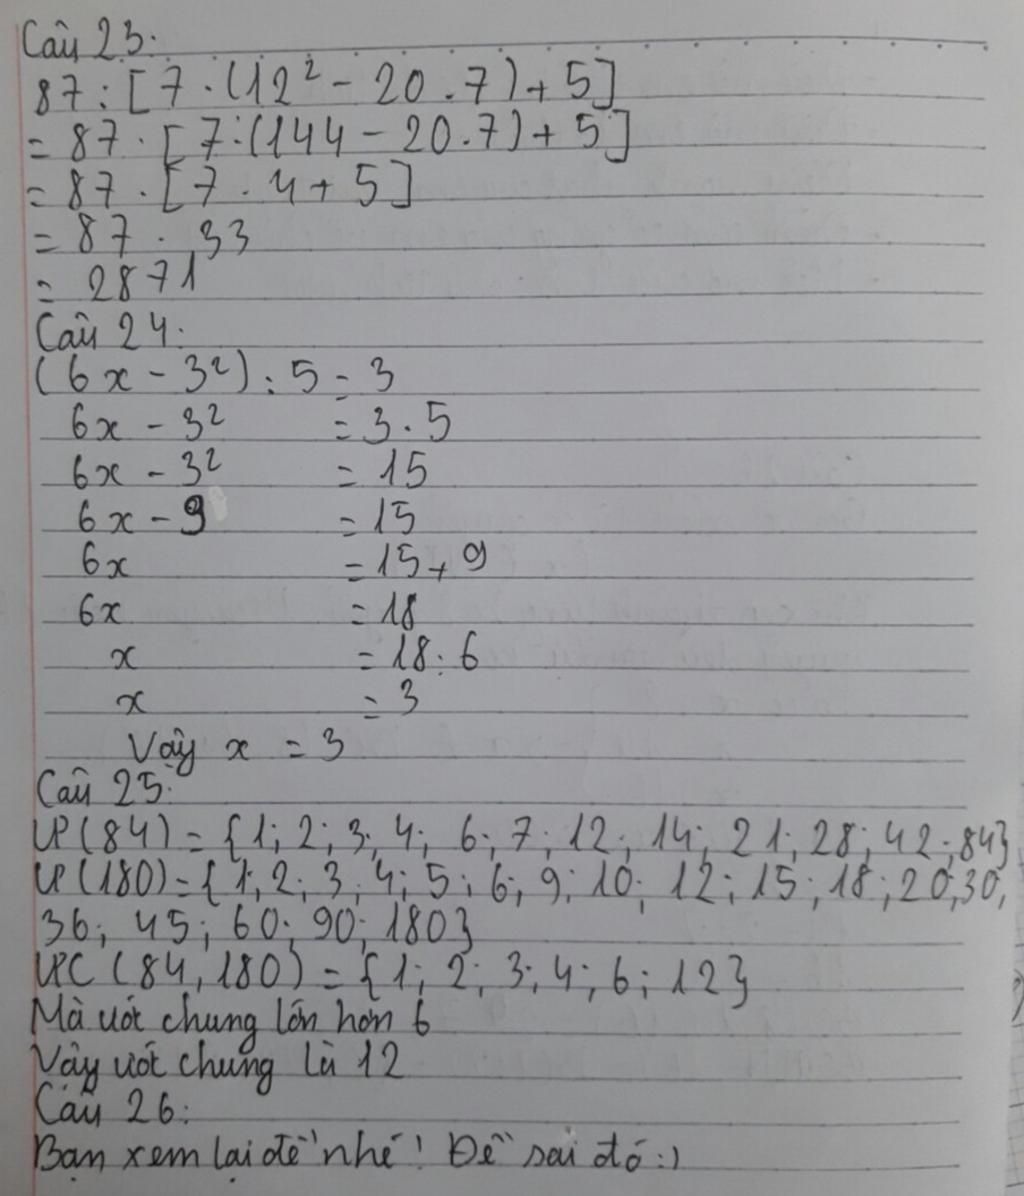 Câu 23:
87:[7.(12²-20.7)+5]
= 87.[7:(144-20.7)+5]
= 87.[7.4+5]
= 87.33
= 2871
Câu 24:
(6x-3²):5=3
6x-3² =3.5
6x-3² =15
6x-9 =15
6x =15+9
6x =18
x =18:6
x =3
Vậy x = 3
Câu 25:
Ư(84)={1;2;3;4;6;7;12;14;21;28;42;84}
Ư(180)={1;2;3;4;5;6;9;10;12;15;18;20;30;
36;45;60;90;180}
ƯC(84,180)={1;2;3;4;6;12}
Mà ước chung lớn hơn 6
Vậy ước chung là 12
Câu 26:
Bạn xem lại đề nhé! Đề sai đó:)